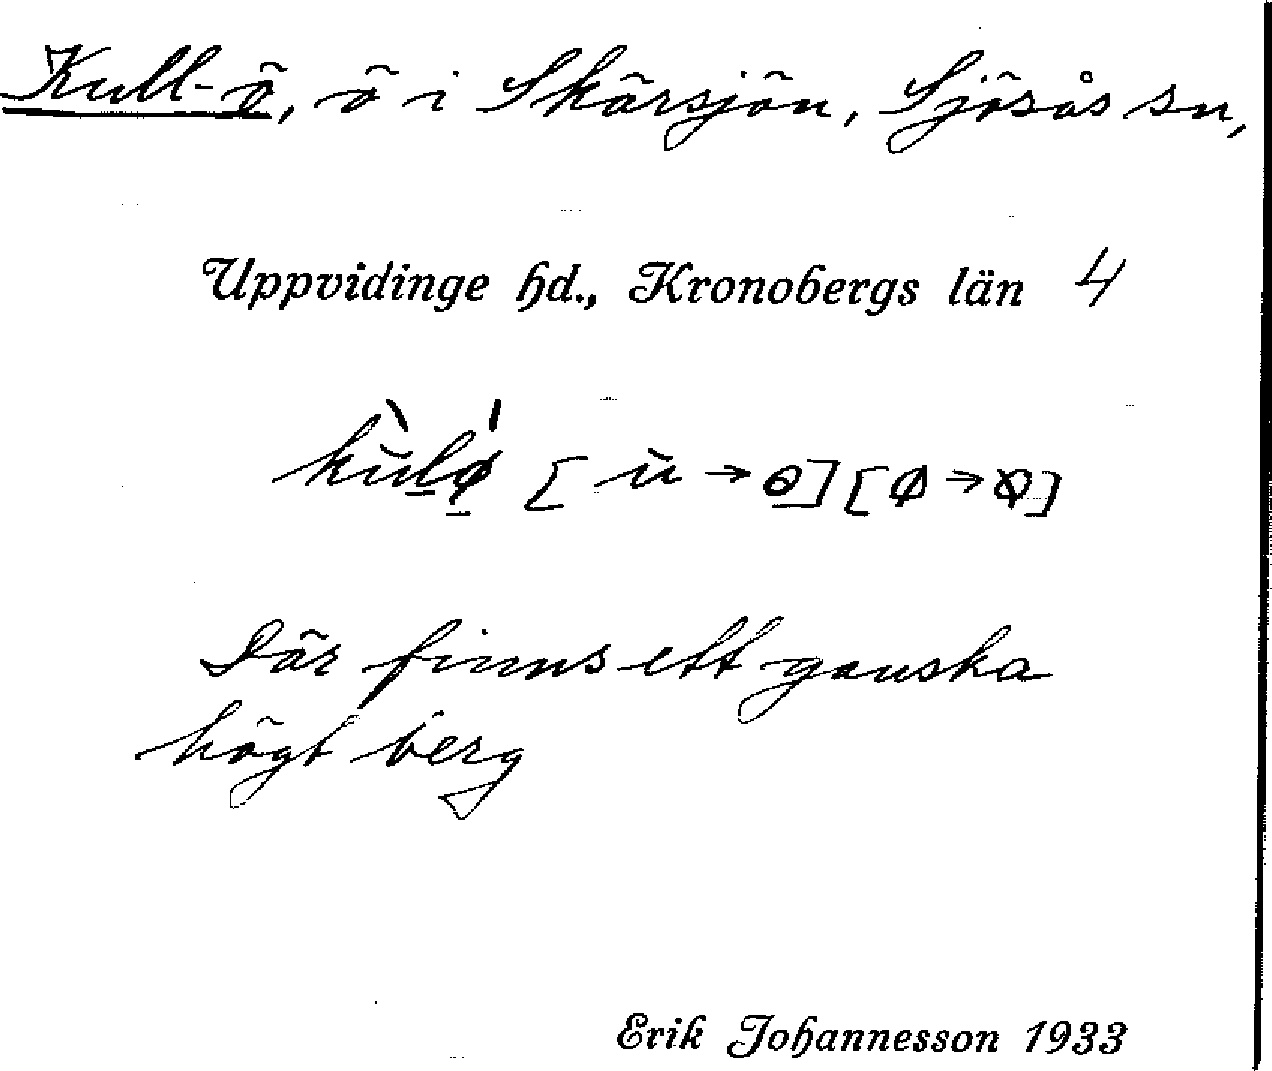 Kull-ö, ö i Skärsjön, Sjösås sn,
Uppvidinge hd., Kronobergs län 4
Där finns ett ganska
högt berg
Erik Johannesson 1933